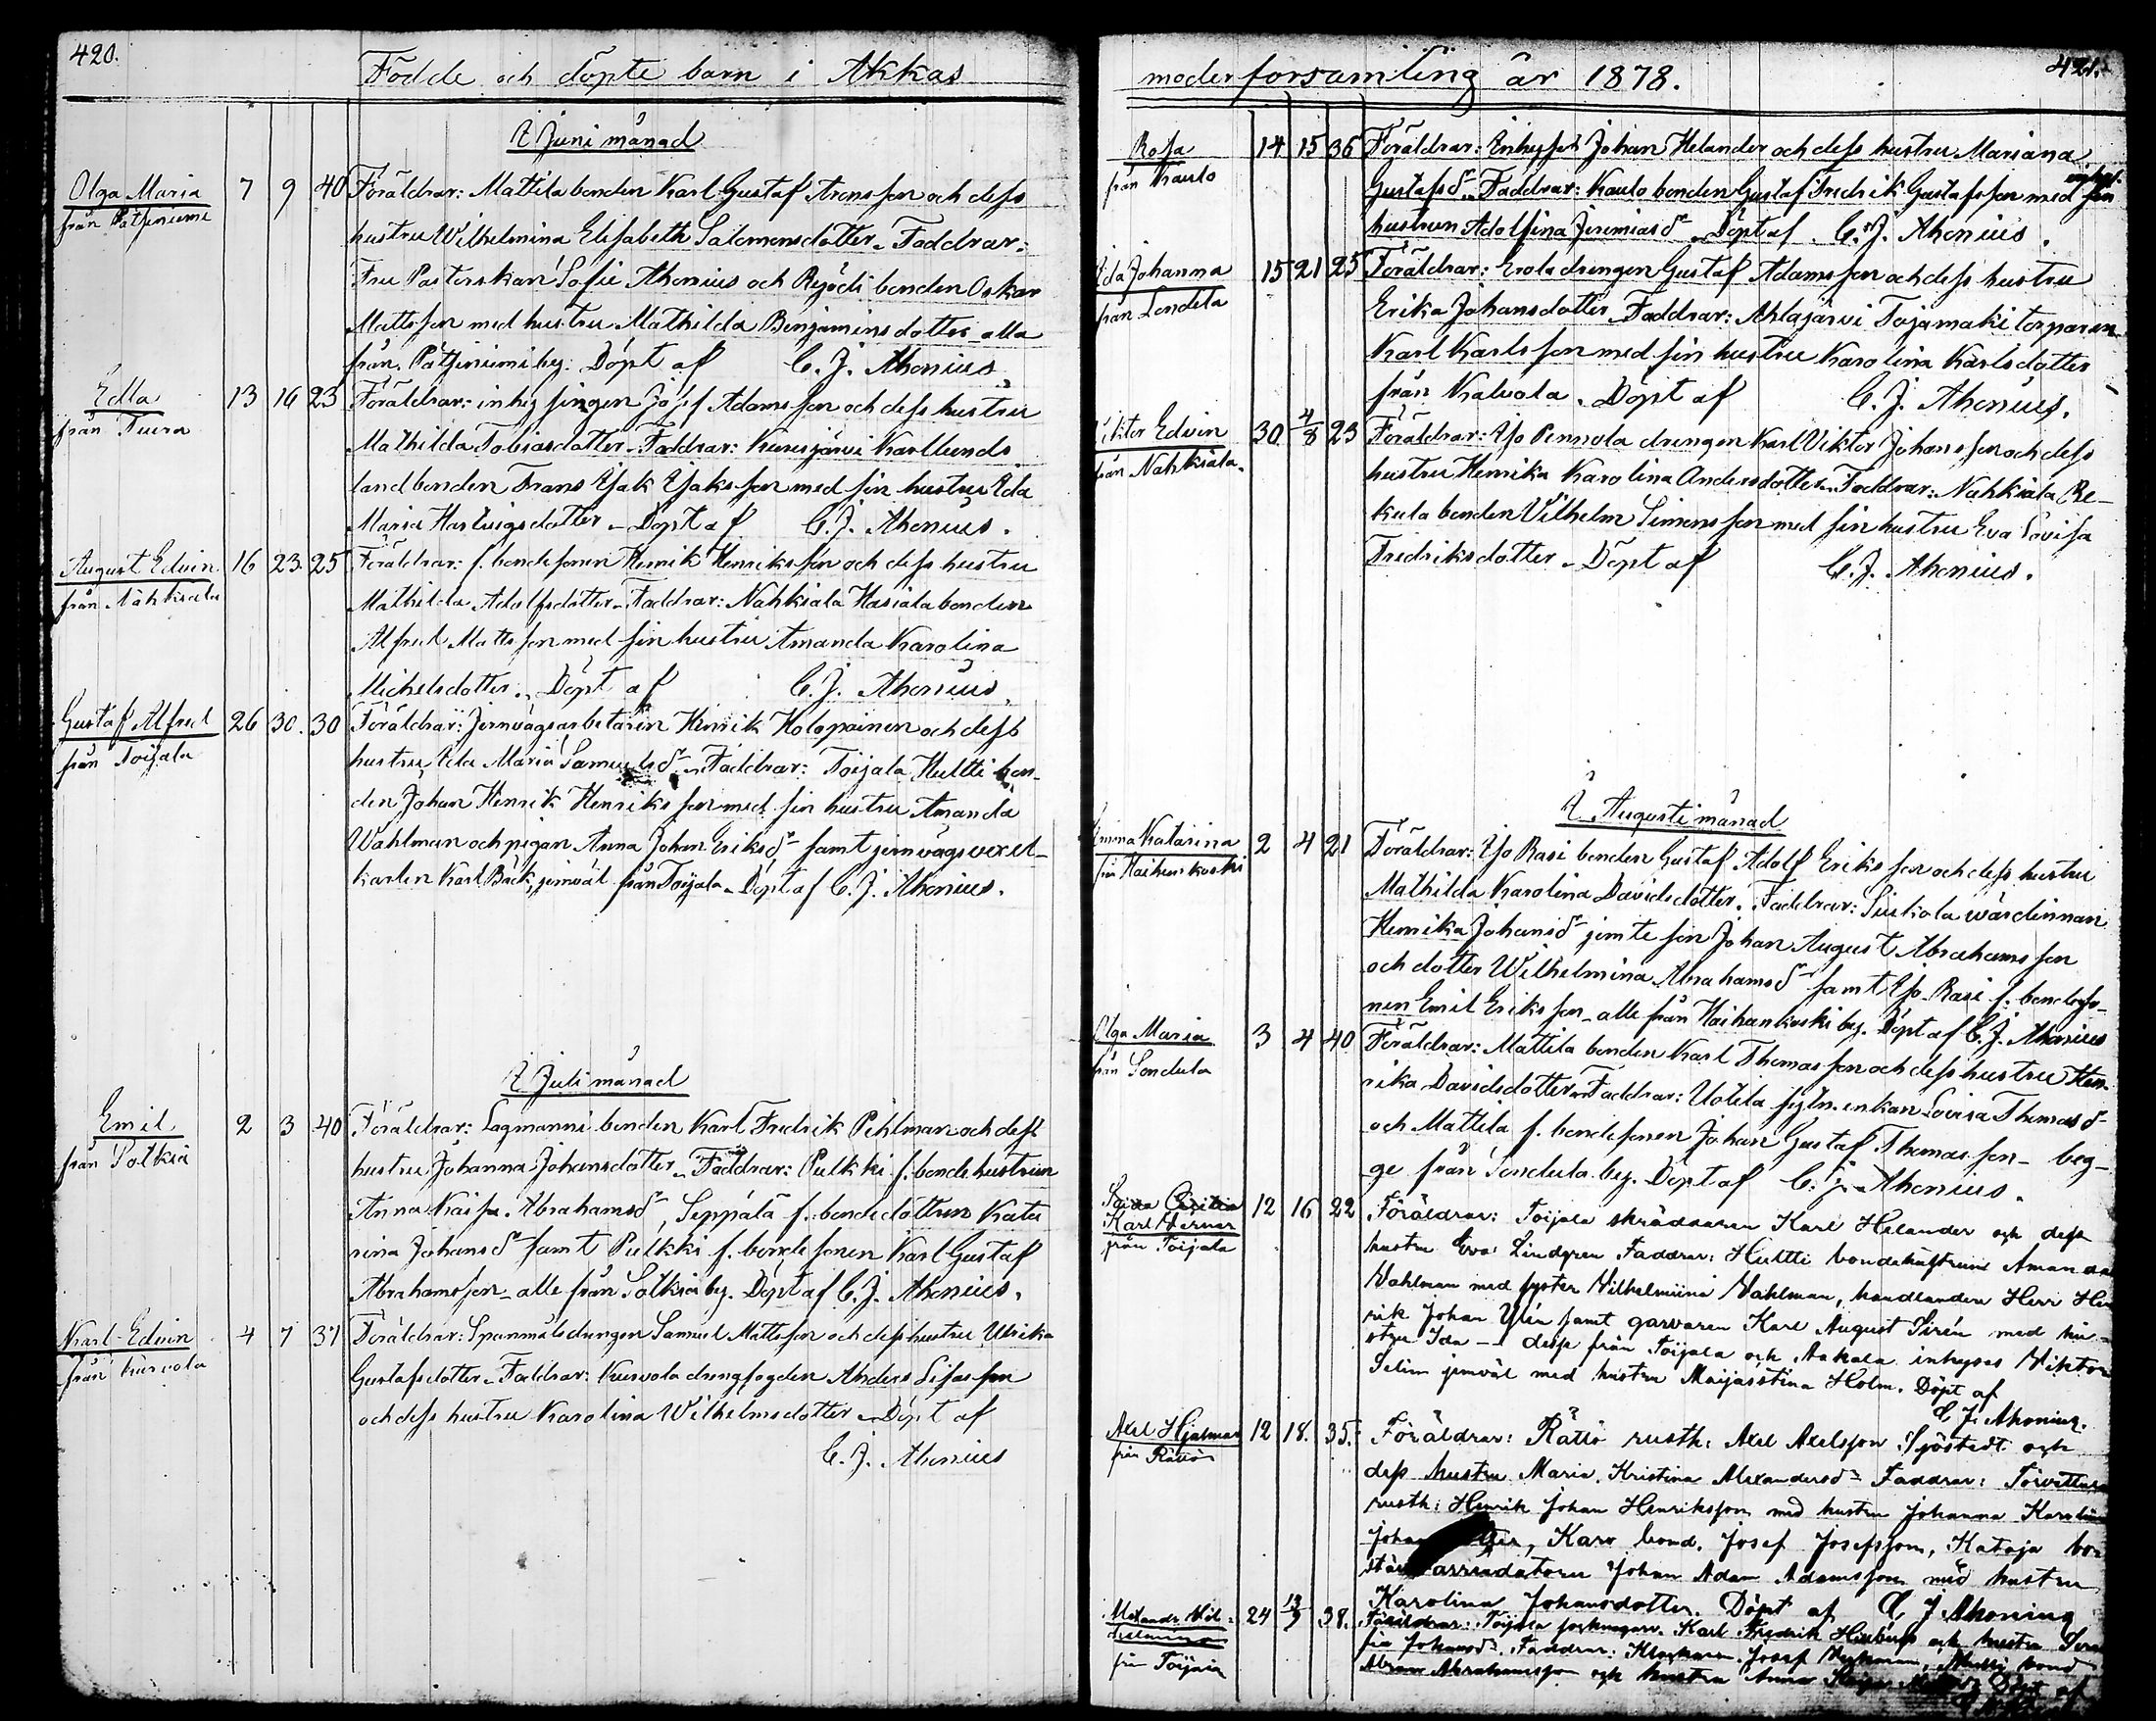 420.
Födde och döpte barn i Akkas
I Juni månad
Olga Maria 7 9 40 Föräldrar: Mattila bonden Karl Gustaf Aronsson och dess
från
hustru Wilhelmina Elisabeth Salomonsdotter. Faddrar:
Fru Pastorskan Sofie Ahonius och bonden Oskar
Mattsson med hustru Mathilda Benjaminsdotter alla
från by. Döpt af C. J. Ahonius
Edla 13 16 23 Föräldrar: inhysingen Josef Adamsson och dess hustru
från
Mathilda Tobiasdotter. Faddrar: Kurisjärvi Karllunds
landbonden Frans Isak Isaksson med sin hustru Ida
Maria Hartvigsdotter. Döpt af C. J. Ahonius.
August Edvin 16 23. 25 Föräldrar: f. bondesonen Henrik Henriksson och dess hustru
från Nahkiala
Mathilda Adolfsdotter. Faddrar: Nahkiala bonden
Alfred Mattsson med sin hustru Amanda Karolina
Michelsdotter. Döpt af C. J. Ahonius
Gustaf Alfred 26 30. 30 Föräldrar: Jernvägsarbetaren Henrik Holopainen och dess
från Toijala
hustru Ida Maria Samuelsdr. Faddrar: Toijala Hultti bon-
den Johan Henrik Henriksson med sin hustru Amanda
Wahlman och pigan Anna Johan Eriksdr samt jernvägs vexel-
karlen Karl Bäck, jemväl från Toijala. Döpt af C. J. Ahonius.
I Juli månad
Emil 2 3 40 Föräldrar: Lagmanni bonden Karl Fredrik Pihlman och dess
från Sotkia
hustru Johanna Johansdotter. Faddrar: Pulkki f. bonde hustrun
Anna Kaisa Abrahamsdr, Seppälä f. bondedottren Kata
rina Johansdr samt Pulkki f. bondesonen Karl Gustaf
Abrahamsson alle från Sotkia by. Döpt af C. J. Ahonius.
Karl Edvin 4 7 37 Föräldrar: Spannmålsdrengen Samuel Mattsson och dess hustru Ulrika
från Kurvola
Gustafsdotter. Faddrar: Kurvola drengfogden Anders
och dess hustru Karolina Wilhelmsdotter. Döpt af
C. J. Ahonius
moderförsamling år 1878.
421.
Rosa 14 15 36 Föräldrar: Inhyses Johan Helander och dess hustru Mariana
från Kaulo
Gustafsdr. Faddrar: Kaulo bonden Gustaf Fredrik Gustafsson med sin
hustrun Adolfina Jeremiasdr. Döpt af C. J. Ahonius.
Ida Johanna 15 21 25 Föräldrar: Erola drengen Gustaf Adamsson och dess hustru
från
Erika Johansdotter. Faddrar: Ahlajärvi Tojamaki torparen
Karl Karlsson med sin hustru Karolina Karlsdotter
från Kalvola. Döpt af C. J. Ahonius.
Viktor Edvin 30 4/8 23 Föräldrar: Iso Pennola drengen Karl Viktor Johansson och dess
från Nahkiala.
hustru Henrika Karolina Andersdotter. Faddrar: Nahkiala Re-
kula bonden Vilhelm Simonsson med sin hustru Eva Lovisa
Fredriksdotter. Döpt af C. J. Ahonius.
I Augusti månad
Emma Katarina 2 4 21 Föräldrar: Iso Rasi bonden Gustaf Adolf Eriksson och dess hustru
från Haihunkoski
Mathilda Karolina Davidsdotter. Faddrar: wärdinnan
Henrika Johansdr jemte son Johan August Abrahamsson
och dotter Wilhelmina Abrahamsdr samt Iso Rasi f. bondeso-
nen Emil Eriksson alle från Haihunkoski by. Döpt af C. J. Ahonius
Olga Maria 3 4 40 Föräldrar: Mattila bonden Karl Thomasson och dess hustru Hen-
från
rika Davidsdotter. Faddrar: Uotila enkan Lovisa Thomasdr
och Mattila f. bondesonen Johan Gustaf Thomasson beg-
ge från by. Döpt af C. J. Ahonius.
Karl Verner 12 16 22 Föräldrar: Toijala skräddaren Karl Helander och dess
från Toijala
hustru Eva Lindgren Faddrar: Hultti bondehustrun Amanda
Vahlman med syster Vilhelmiina Vahlman, handlanden Herr Hen
rik Johan Ylén samt garvaren Karl August Sirén med hu-
stru Ida — desse från Toijala och Aakala inhyses Viktor
Selin jemväl med hustru Maijastina Holm. Döpt af
C J. Ahonius.
Axel Hjalmar 12 18. 35. Föräldrar: Rättö rusth: Axel Axelsson Sjöstedt och
från Rättö
dess hustru Maria Kristina Alexandersdr Faddrar:
rusth: Henrik Johan Henriksson med hustru Johanna Karolina
Karo bond. Josef Josefsson, Kataja
arrendatorn Johan Adam Adamsson med hustru
Karolina Johansdotter. Döpt af C J Ahonius
24 13/9 38. Föräldrar: Toijala Karl Fredrik och hustru
från Toijala
Johansdr. Faddrar: Klockaren Josef bond
Abrahamsson och hustru Anna Döpt af